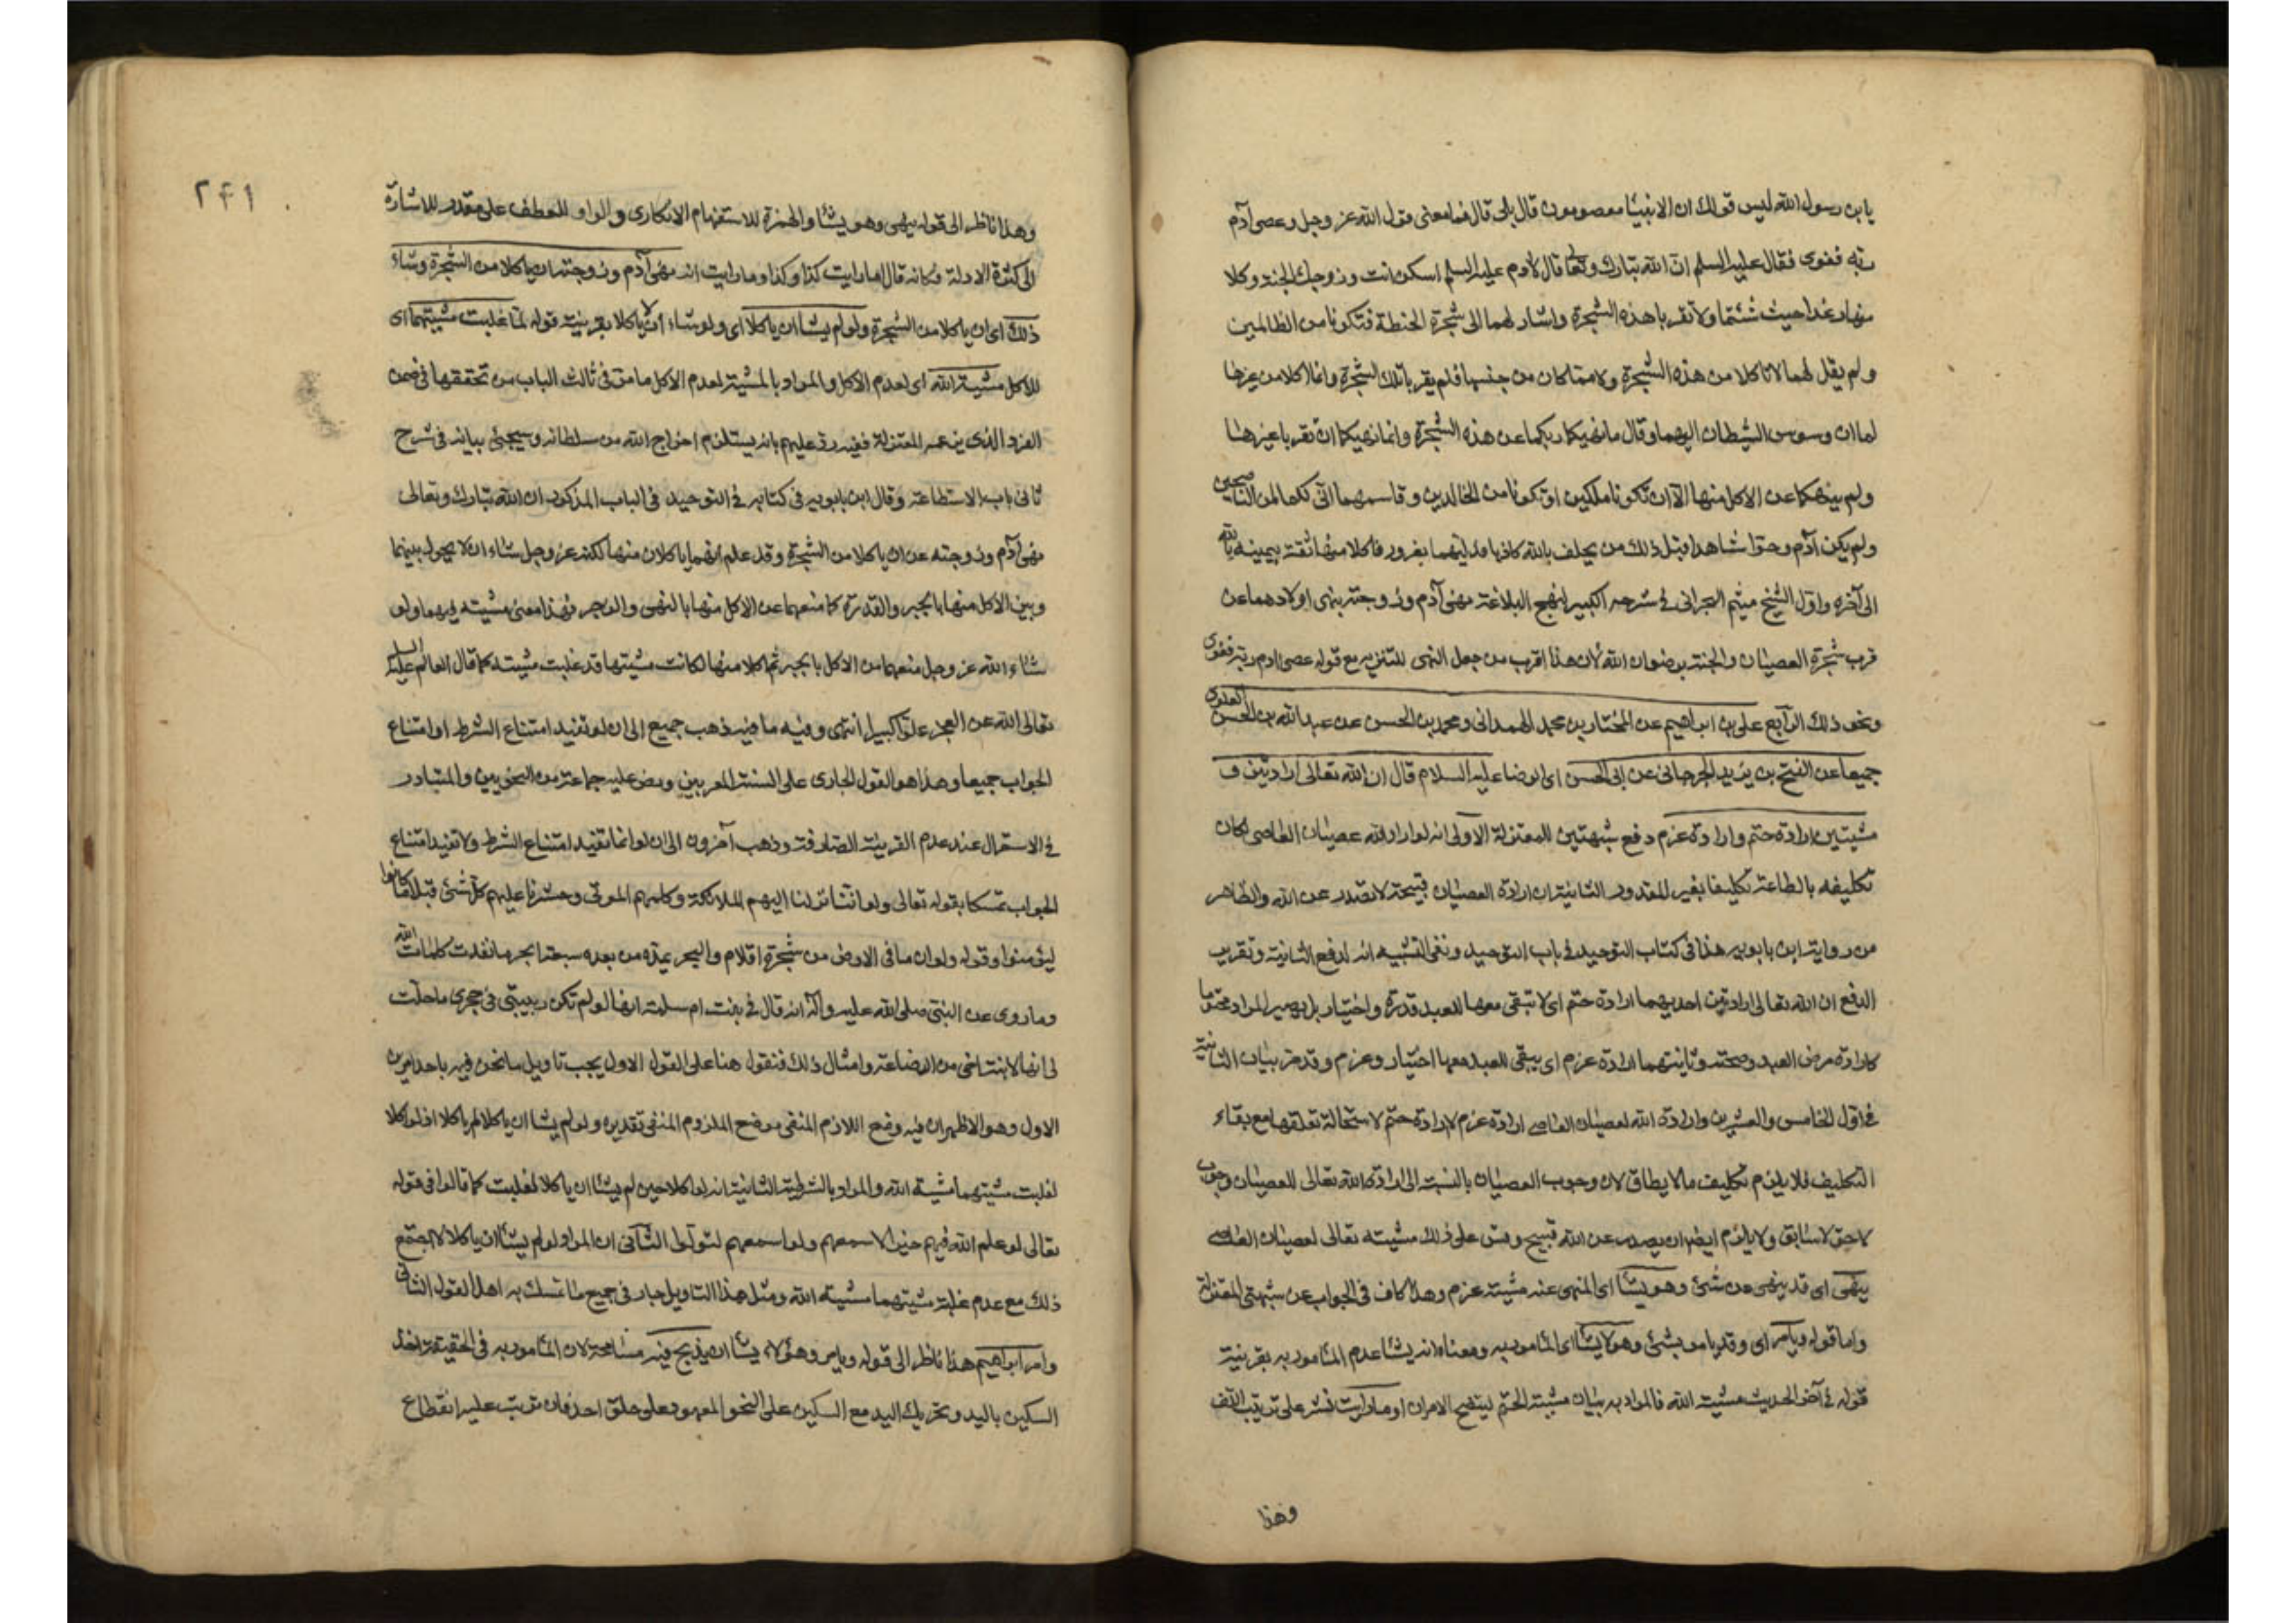 يا بن رسول الله ليس قولك ان الانبيا معصومون قال بلى قال فما معنى قول الله عز وجل وعصى آدم
ربه فغوى فقال عليه السلم ان الله تبارك وتعا قال لادم عليه السلم اسكن انت وزوجك الجنة وكلا
منها رغدا حيث شئتما ولا تقربا هذه الشجرة واشار لهما الى شجرة الحنطة فتكونا من الظالمين
ولم يقل لهما لا تاكلا من هذه الشجرة ولا مما كان من جنسها فلم يقربا تلك الشجرة وانما اكلا من غيرها
لما ان وسوس الشيطان اليهما وقال ما نهيكما ربكما عن هذه الشجرة وانما نهيكما ان تقربا غيرها
ولم ينهكما عن الاكل منها الا ان تكونا ملكين او تكونا من الخالدين وقاسمهما انى لكما لمن الناصحين
ولم يكن آدم وحوا شاهدا قبل ذلك من يحلف بالله كاذبا فدليهما بغرور فاكلا منها ثقة بيمينه بالله
الى آخره واول الشيخ ميثم البحرانى فى شرحه الكبير لنهج البلاغة نهى آدم وزوجته بنهى اولادهما عن
قرب شجرة العصيان والجنة برضوان الله لان هذا اقرب من جعل النهى للتنزيه مع قوله عصى ادم ربه فغوى
ونحو ذلك الرابع على بن ابراهيم عن المختار بن محمد الهمدانى ومحمد بن الحسن عن عبد الله بن الحسن العلوى
جميعا عن الفتح بن يزيد الجرجانى عن ابى الحسن اى الرضا عليه السلام قال ان الله تعالى ارادتين و
مشيتين ارادة حتم وارادة عزم دفع شبهتين للمعتزلة الاولى انه لو اراد الله عصيان العاصى لكان
تكليفه بالطاعة تكليفا بغير المقدور الثانية ان ارادة العصيان قبيحة لا تصدر عن الله والظاهر
من رواية ابن بابويه هذا فى كتاب التوحيد فى باب التوحيد ونفى التشبيه انه لدفع الثانية وتقرير
الدفع ان الله تعالى ارادتين احديهما ارادة حتم اى لا تبقى معها للعبد قدرة واختيار بل يصير المراد محتوما
كارادة مرض العبد وصحته وثانيتهما ارادة عزم اى يبقى للعبد معها اختيار وعزم وقد مر بيان الثانية
فى اول الخامس والعشرين وارادة الله لعصيان العاصى ارادة عزم لا ارادة حتم لاستحالة تعلقها مع بقاء
التكليف فلا يلزم تكليف ما لا يطاق لان وجوب العصيان بالنسبة الى ارادة الله تعالى للعصيان وجوب
لاحق لا سابق ولا يلزم ايضا ان يصدر عن الله قبيح وقس على ذلك مشيته تعالى لعصيان العاصى
ينهى اى قد ينهى عن شىء وهو يشا اى المنهى عنه مشية عزم وهذا كاف فى الجواب عن شبهتى المعتزلة
واما قوله ويامر اى وقد يامر بشىء وهو لا يشا اى المامور به ومعناه انه يشا عدم المامور به بقرينة
قوله فى آخر الحديث مشية الله فالمراد به بيان مشية الحتم ليتضح الامران او ما رايت نشر على ترتيب اللف
وهذا
٢٤١
وهذا ناظر الى قوله ينهى وهو يشا والهمزة للاستفهام الانكارى والواو للعطف على مقدر للاشارة
الى كثرة الادلة فكانه قال اما رايت كذا وكذا وما رايت انه نهى آدم وزوجته ان ياكلا من الشجرة وشاء
ذلك اى ان ياكلا من الشجرة ولو لم يشا ان ياكلا اى ولو شاء ان لا ياكلا بقرينة قوله لما غلبت مشيتهما اى
للاكل مشية الله اى لعدم الاكل والمراد بالمشية لعدم الاكل ما مر فى ثالث الباب من تحققها فى ضمن
الفرد الذى ينفيه المعتزلة ففيه رد عليهم بانه يستلزم اخراج الله من سلطانه وسيجئ بيانه فى شرح
ثانى باب الاستطاعة وقال ابن بابويه فى كتابه فى التوحيد فى الباب المذكور ان الله تبارك وتعالى
نهى آدم وزوجته عن ان ياكلا من الشجرة وقد علم انهما ياكلان منها لكنه عز وجل شاء ان لا يحول بينهما
وبين الاكل منها بالجبر والقدرة كما منعهما عن الاكل منها بالنهى والزجر فهذا معنى مشيته فيهما ولو
شاء الله عز وجل منعهما من الاكل بالجبر ثم اكلا منها لكانت مشيتها قد غلبت مشيته كما قال العالم عليه السلم
تعالى الله عن العجز علوا كبيرا انتهى وفيه ما فيه ذهب جميع الى ان لو تفيد امتناع الشرط او امتناع
الجواب جميعا وهذا هو القول الجارى على السنة المعربين ونص عليه جماعة من النحويين والمتبادر
فى الاستعمال عند عدم القرينة الصارفة وذهب آخرون الى ان لو انما تفيد امتناع الشرط ولا تفيد امتناع
الجواب تمسكا بقوله تعالى ولو اننا نزلنا اليهم الملائكة وكلمهم الموتى وحشرنا عليهم كل شئ قبلا ما كانوا
ليؤمنوا وقوله ولو ان ما فى الارض من شجرة اقلام والبحر يمده من بعده سبعة ابحر ما نفدت كلمات الله
وما روى عن النبى صلى الله عليه وآله انه قال فى بنت ام سلمة انها لو لم تكن ربيبتى فى حجرى ما حلت
لى انها لابنة اخى من الرضاعة وامثال ذلك فنقول هنا على القول الاول يجب تاويل ما نحن فيه باحد امرين
الاول وهو الاظهر ان فيه وضع اللازم المنفى موضع الملزوم المنفى تقديره ولو لم يشا ان ياكلا لم ياكلا اذ لو اكلا
لغلبت مشيتهما مشية الله والمراد بالشرطية الثانية انه لو اكلا حين لم يشا ان ياكلا لغلبت كما قالوا فى قوله
تعالى لو علم الله فيهم خيرا لاسمعهم ولو اسمعهم لتولوا الثانى ان المراد لو لم يشا ان ياكلا لاجتمع
ذلك مع عدم غلبة مشيتهما مشية الله ومثل هذا التاويل جار فى جميع ما تمسك به اهل القول الثانى
وامر ابراهيم هذا ناظر الى قوله ويامر وهو لا يشا ان يذبح فيه مسامحة لان المامور به فى الحقيقة اخذ
السكين باليد وتحريك اليد مع السكين على النحو المعهود على حلق احد فان ترتب عليه انقطاع